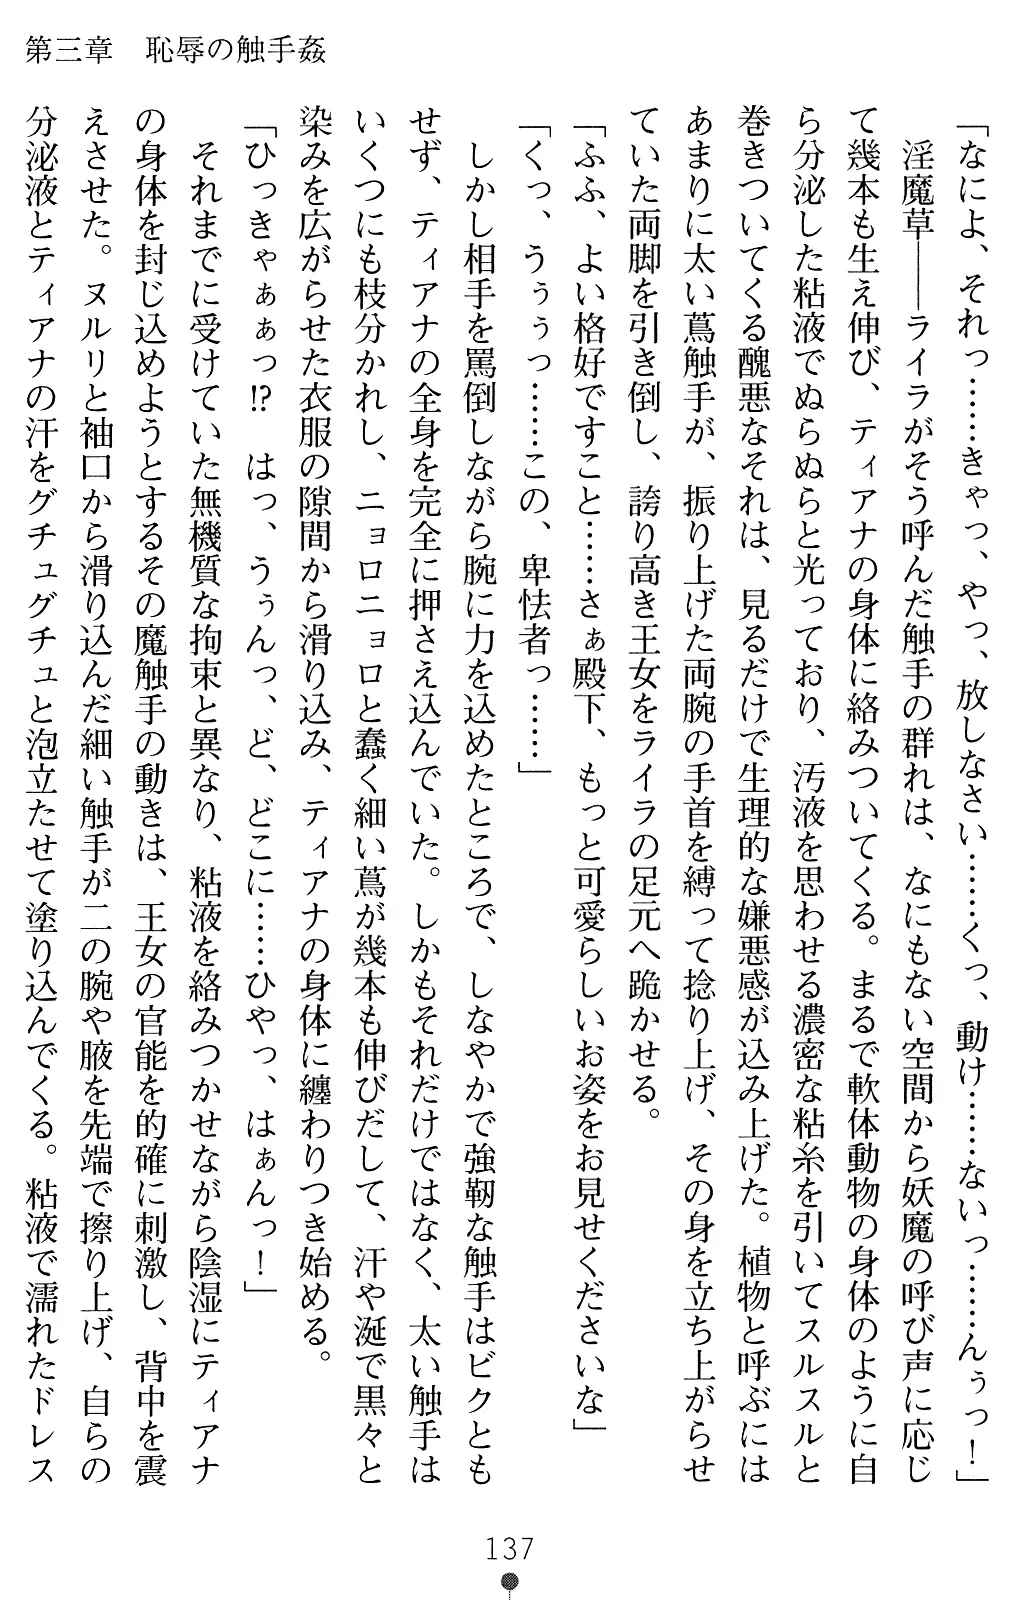 第三章　恥辱の触手姦
「なによ、それっ……きゃっ、やっ、放しなさい……くっ、動け……ないっ……んぅっ！」
　淫魔草――ライラがそう呼んだ触手の群れは、なにもない空間から妖魔の呼び声に応じ
て幾本も生え伸び、ティアナの身体に絡みついてくる。まるで軟体動物の身体のように自
ら分泌した粘液でぬらぬらと光っており、汚液を思わせる濃密な粘糸を引いてスルスルと
巻きついてくる醜悪なそれは、見るだけで生理的な嫌悪感が込み上げた。植物と呼ぶには
あまりに太い蔦触手が、振り上げた両腕の手首を縛って捻り上げ、その身を立ち上がらせ
ていた両脚を引き倒し、誇り高き王女をライラの足元へ跪かせる。
「ふふ、よい格好ですこと……さぁ殿下、もっと可愛らしいお姿をお見せくださいな」
「くっ、うぅぅっ……この、卑怯者っ……」
　しかし相手を罵倒しながら腕に力を込めたところで、しなやかで強靭な触手はビクとも
せず、ティアナの全身を完全に押さえ込んでいた。しかもそれだけではなく、太い触手は
いくつにも枝分かれし、ニョロニョロと蠢く細い蔦が幾本も伸びだして、汗や涎で黒々と
染みを広がらせた衣服の隙間から滑り込み、ティアナの身体に纏わりつき始める。
「ひっきゃぁぁっ!?　はっ、うぅんっ、ど、どこに……ひやっ、はぁんっ！」
　それまでに受けていた無機質な拘束と異なり、粘液を絡みつかせながら陰湿にティアナ
の身体を封じ込めようとするその魔触手の動きは、王女の官能を的確に刺激し、背中を震
えさせた。ヌルリと袖口から滑り込んだ細い触手が二の腕や腋を先端で擦り上げ、自らの
分泌液とティアナの汗をグチュグチュと泡立たせて塗り込んでくる。粘液で濡れたドレス
137